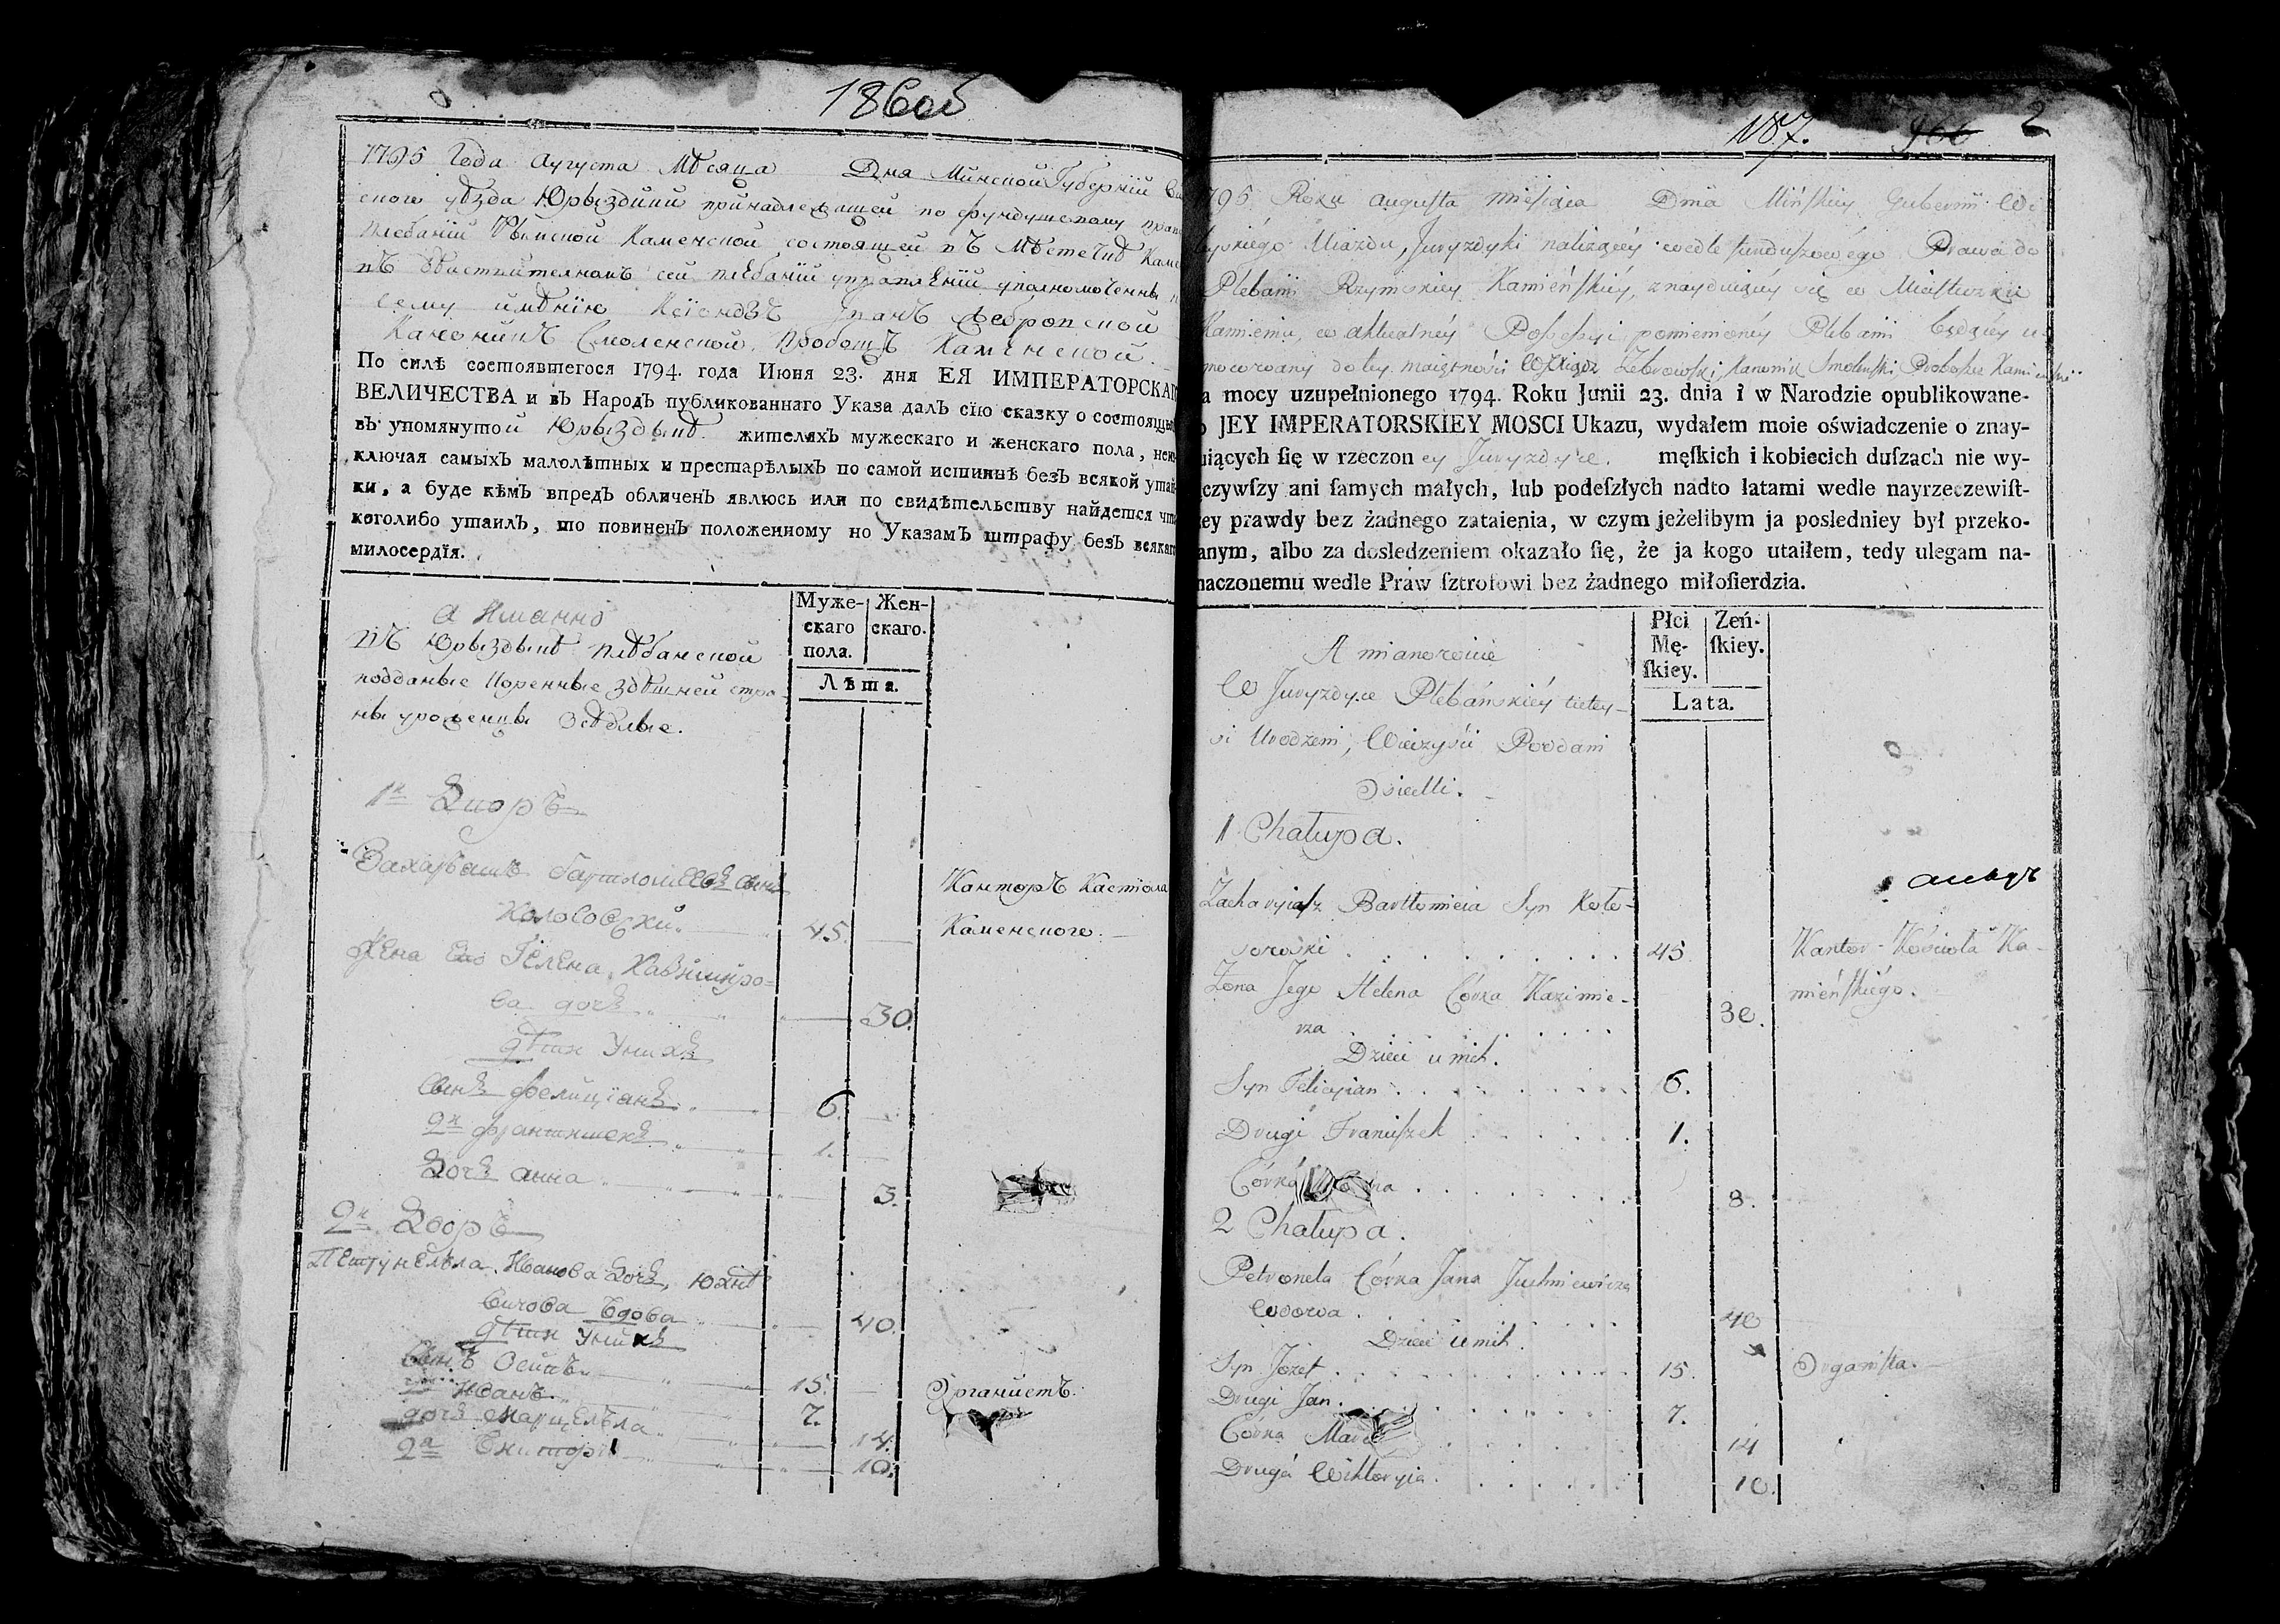 186об
1795 Года Августа Мѣсяца Дня Минской Губернїи
ского уѣзда Юрыздики принадлежащей по фундушевому
плебанїи Рымской Каменской состоящей въ Мѣстечкѣ
въ дѣйствителномъ сей плебанїи управленїи уполномоченны
сему имѣнїю Ксіондзъ Жебровской
Каноникъ Смоленской, Пробощъ Каменской.
По силѣ состоявшегося 1794. года Июня 23. дня ЕЯ ИМПЕРАТОРСКАГ
ВЕЛИЧЕСТВА и въ Народъ публикованнаго Указа далъ сїю сказку о состоящих
въ упомянутой Юрыздыкѣ жителяхъ мужескаго и женскаго пола, неис
ключая самыхъ малолѣтных и престарѣлыхъ по самой истиннѣ безъ всякой утай
ки, а буде кѣмъ впредъ обличенъ явлюсь или по свидѣтельству найдется что
коголибо утаилъ, то повиненъ положенному по Указамъ штрафу безъ всякаг
милосердїя.
а Имянно
въ Юрыздыкѣ плебанской
подданые коренные здѣшней стра-
ны уроженцы осѣдлые.
Муже-
скаго
пола.
Жен-
скаго.
Лѣта.
1й Дворъ
Захарыашъ Бартломѣевъ сынъ
Колосовский. 45.
Канторъ Кастіола
Каменского.
Жена его Гелена Казимиро-
ва дочь 30.
дѣти у нихъ
Сынъ Фелицїанъ 6.
2й Франтишекъ 1.
Дочь Анна 3.
2й Дворъ
Петрунелѣла Иванова дочь, Юхнѣ
вичова вдова 40.
дѣти у нихъ
Сынъ Осипъ 15. Органистъ.
Иванъ 7.
дочь Марцелѣла 14.
2я Викторя 10.
187. 2
795 Roku Augusta Miesiąca Dnia Mińskiey Gubernii Wi
Uiazdu, Juryzdyki należącey wedle funduszowego Prawa do
Plebanii Rzymskiey Kamieńskiey, znayduiącey się w Miasteczku
Kamieniu, w aktualney Possessyi pomienioney Plebanii będącey u-
mocowany do tey maiętności Xiądz Żebrowski, Kanonik Smoleński, Proboszcz Kamieński
a mocy uzupełnionego 1794. Roku Junii 23. dnia i w Narodzie opublikowane-
o JEY IMPERATORSKIEY MOSCI Ukazu, wydałem moie oświadczenie o znay-
uiących ſię w rzeczoney Juryzdyce. męſkich i kobiecich duſzach nie wy-
czywſzy ani ſamych małych, lub podeſzłych nadto latami wedle nayrzeczewiſt-
zey prawdy bez żadnego zataienia, w czym jeżelibym ja posledniey był przeko-
anym, albo za dosledzeniem okazało ſię, że ja kogo utaiłem, tedy ulegam na-
naczonemu wedle Praw ſztrofowi bez żadnego miłoſierdzia.
A mianowicie
W Juryzdyce Plebańskiey tutey-
si Urodzeni, Wieczyści Poddani
Osiedli.
Płci
Mę-
ſkiey.
Zeń-
ſkiey.
Lata.
1 Chałupa.
Zacharyiasz Bartłomieia Syn Koło-
sowski 45
Kantor Kościoła Ka-
mieńskiego.
Żona Jego Helena Córka Kazimie-
rza 30.
Dzieci u nich.
Syn Felicyian 6.
Drugi Franciszek 1.
Córka 3.
2 Chałupa.
Petronela Córka Jana Juchniewicza
Wdowa 40
Dzieci u nich.
Syn Jozef 15. Organista.
Drugi Jan 7.
Córka 14
Druga Wiktoryia 10.